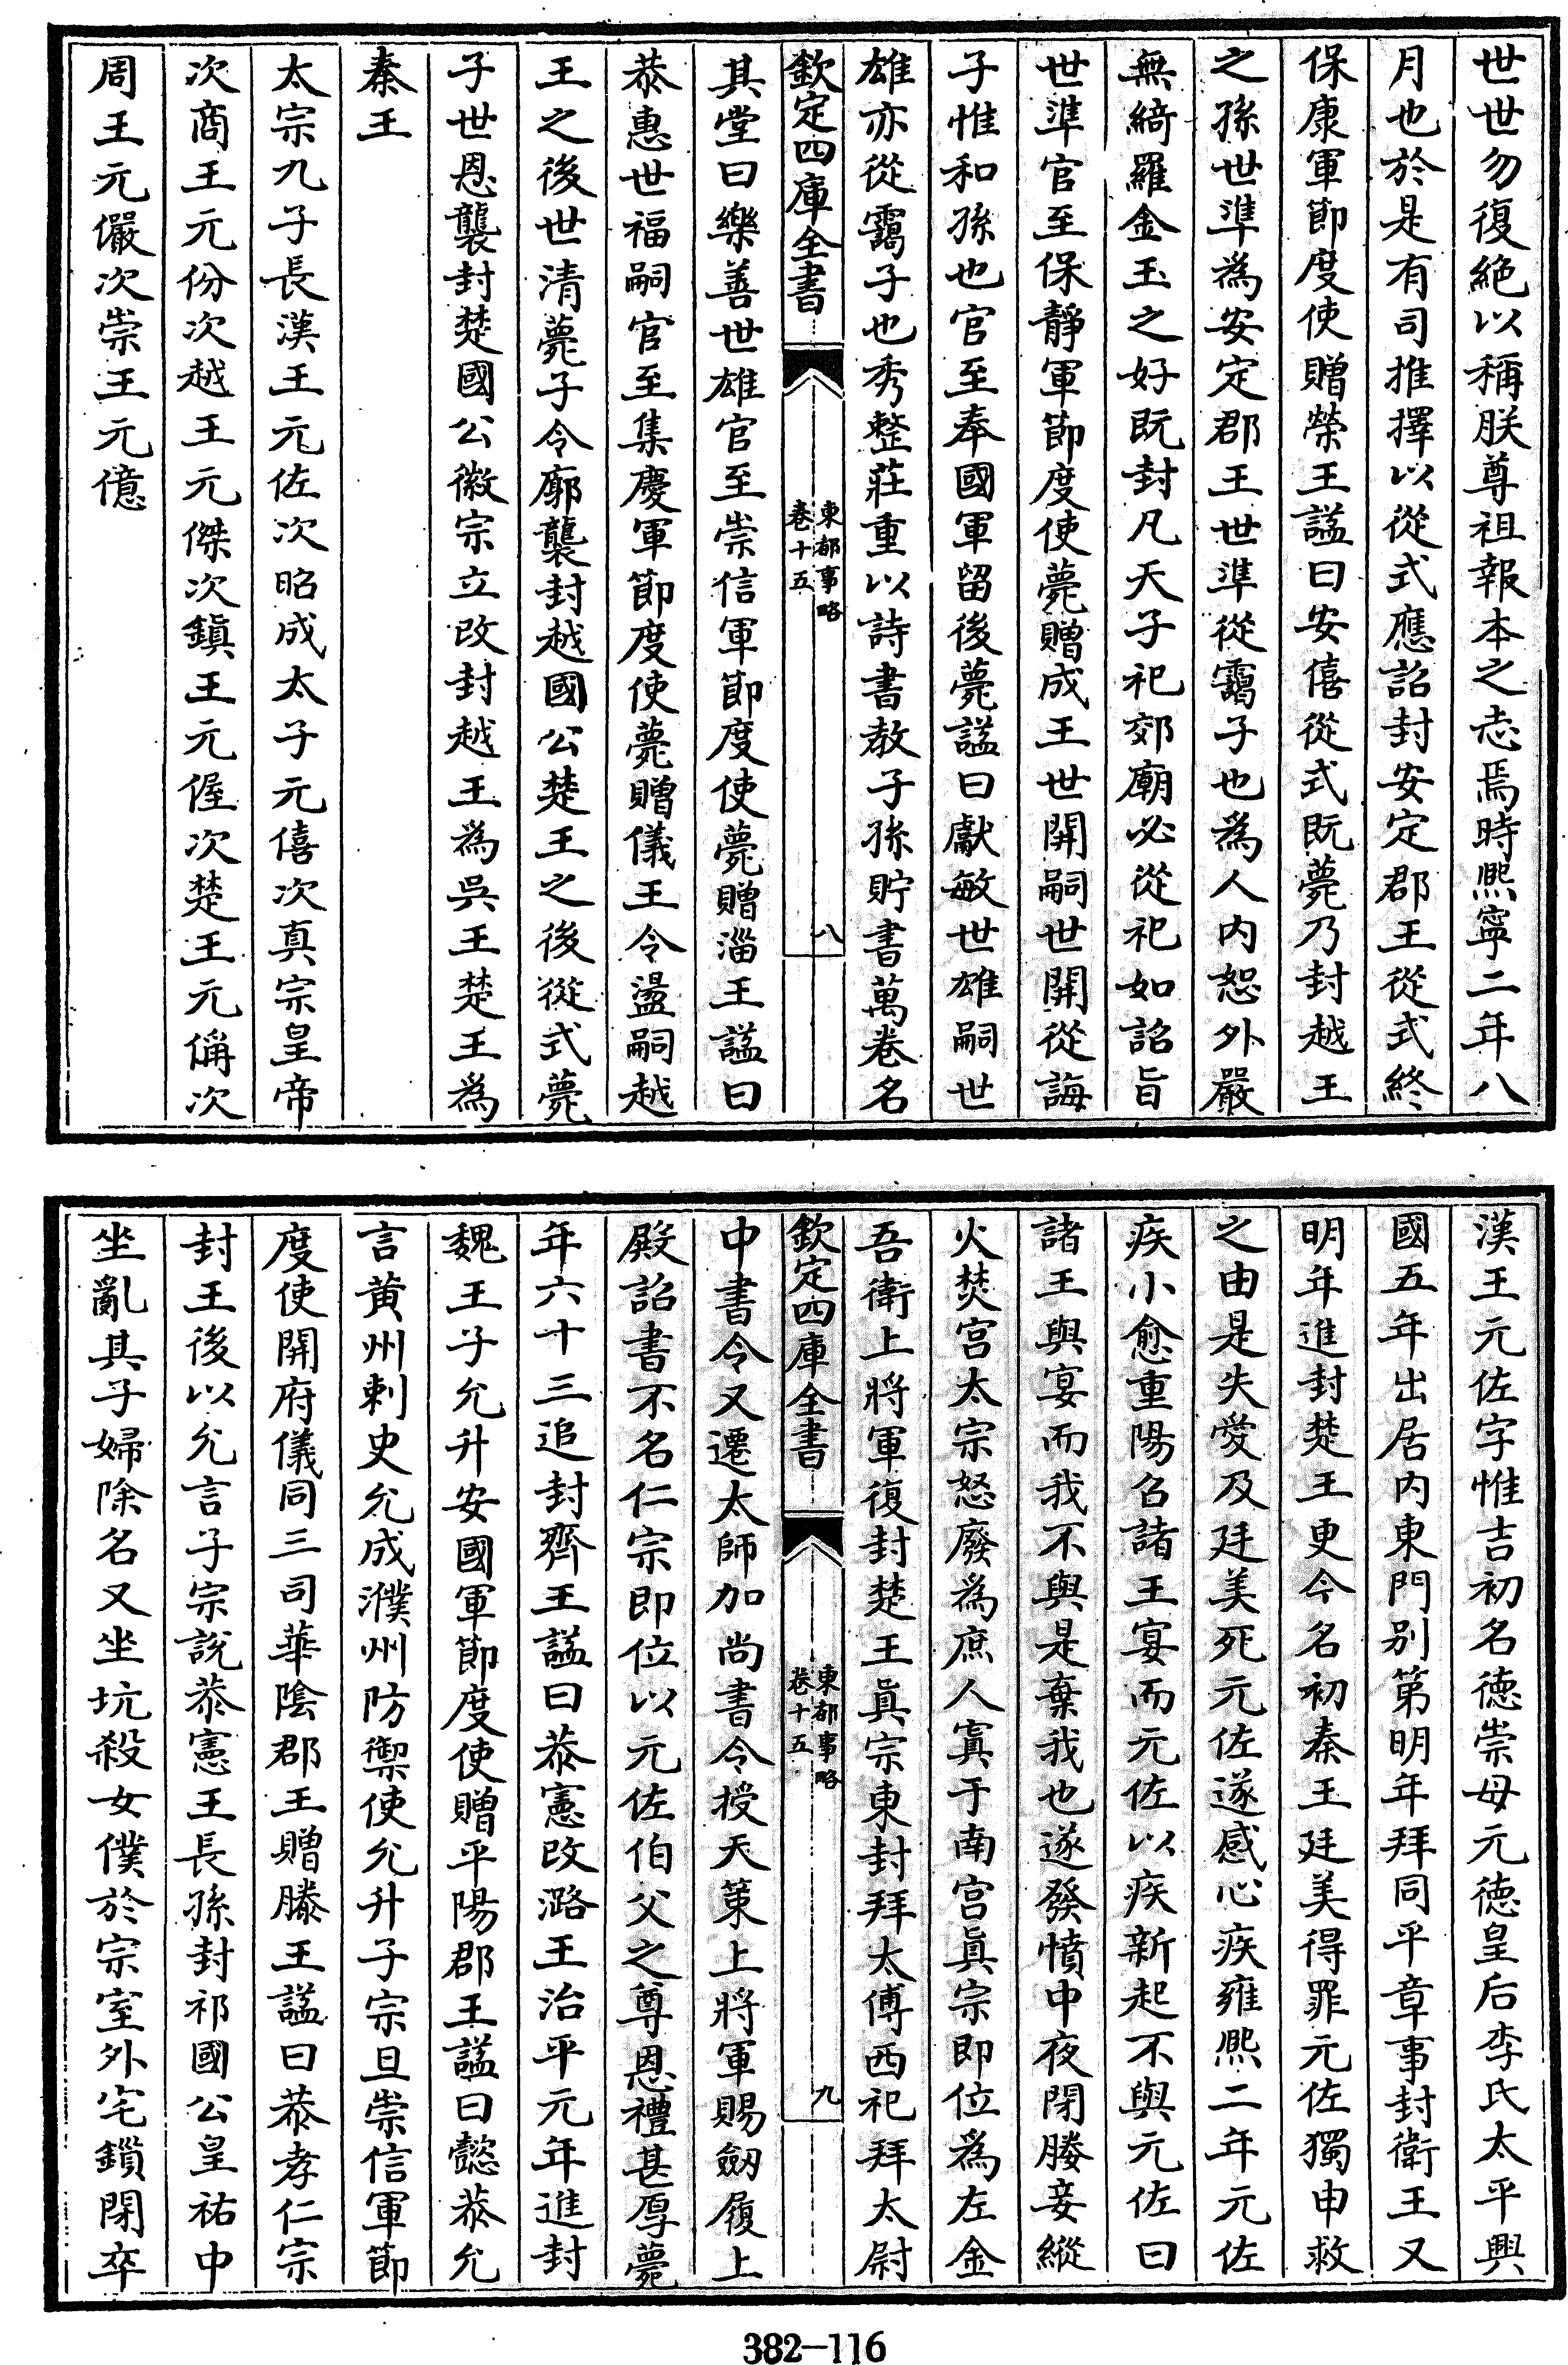 世世勿復絶以稱朕尊祖報本之志焉時熙寧二年八
月也於是有司推擇以從式應詔封安定郡王從式終
保康軍節度使贈榮王諡曰安僖從式既薨乃封越王
之孫世準為安定郡王世準從靄子也為人内恕外嚴
無綺羅金玉之好既封凡天子祀郊廟必從祀如詔旨
世準官至保靜軍節度使薨贈成王世開嗣世開從誨
子惟和孫也官至奉國軍留後薨諡曰獻敏世雄嗣世
雄亦從靄子也秀整莊重以詩書教子孫貯書萬卷名
欽定四庫全書
東都事略
卷十五
八
其堂曰樂善世雄官至崇信軍節度使薨贈淄王諡曰
恭惠世福嗣官至集慶軍節度使薨贈儀王令盪嗣越
王之後世清薨子令廓襲封越國公楚王之後從式薨
子世恩襲封楚國公徽宗立改封越王為吳王楚王為
秦王
太宗九子長漢王元佐次昭成太子元僖次真宗皇帝
次商王元份次越王元傑次鎮王元偓次楚王元偁次
周王元儼次崇王元億
漢王元佐字惟吉初名德崇母元德皇后李氏太平興
國五年出居内東門别第明年拜同平章事封衛王又
明年進封楚王更今名初秦王廷美得罪元佐獨申救
之由是失愛及廷美死元佐遂感心疾雍熙二年元佐
疾小愈重陽召諸王宴而元佐以疾新起不與元佐曰
諸王與宴而我不與是棄我也遂發憤中夜閉媵妾縱
火焚宫太宗怒廢為庶人寘于南宫眞宗即位為左金
吾衛上將軍復封楚王眞宗東封拜太傅西祀拜太尉
欽定四庫全書
東都事略
卷十五
九
中書令又遷太師加尚書令授天策上將軍賜劒履上
殿詔書不名仁宗即位以元佐伯父之尊恩禮甚厚薨
年六十三追封齊王諡曰恭憲改潞王治平元年進封
魏王子允升安國軍節度使贈平陽郡王諡曰懿恭允
言黄州刺史允成濮州防禦使允升子宗旦崇信軍節
度使開府儀同三司華隂郡王贈滕王諡曰恭孝仁宗
封王後以允言子宗說恭憲王長孫封祁國公皇祐中
坐亂其子婦除名又坐坑殺女僕於宗室外宅鎖閉卒
382-116